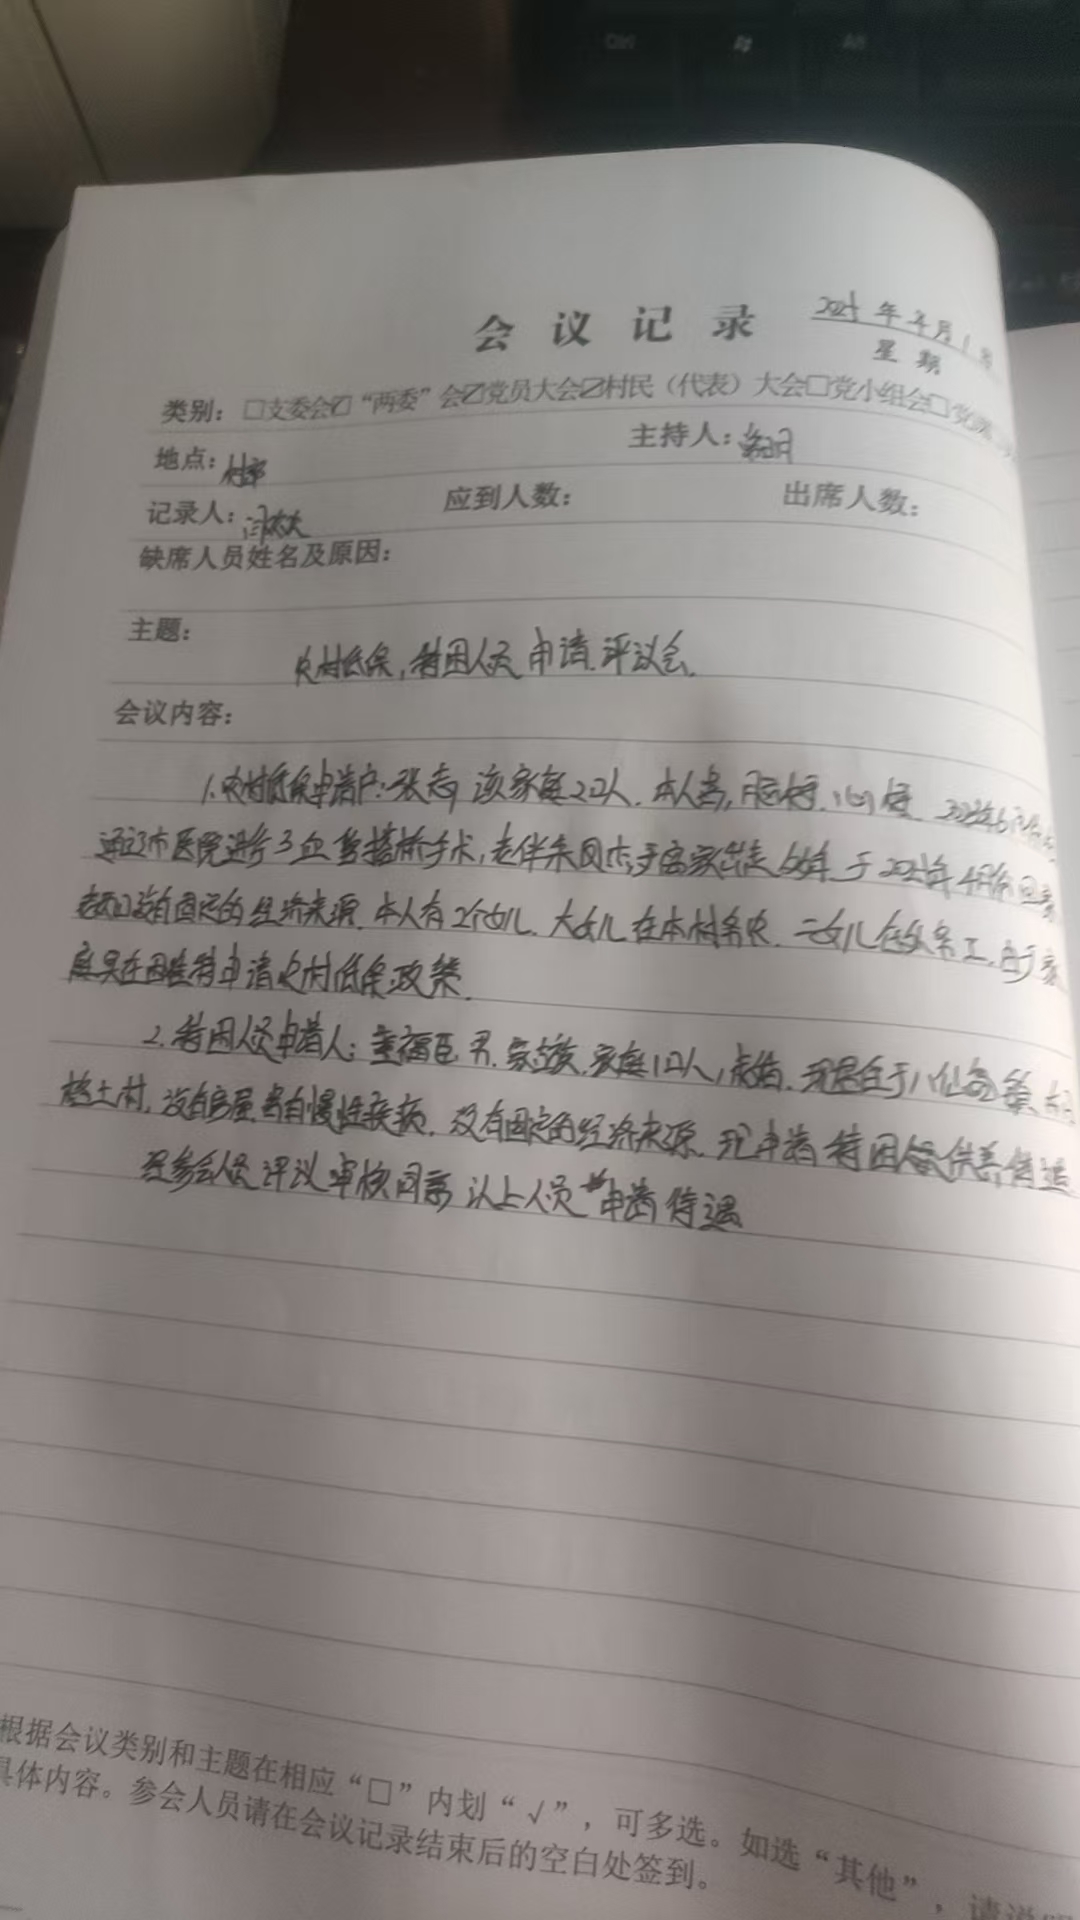 Ctrl Alt
会议记录 年4月1日
星期
类别：□支委会☑“两委”会☑党员大会☑村民（代表）大会□党小组会□党课
地点：村部 主持人：
记录人：闫 应到人数： 出席人数：
缺席人员姓名及原因：
主题：
农村低保，特困人员申请评议会。
会议内容：
1.农村低保申请户：张志 该家庭2口人，本人患，
通辽市医院进行了血管搭桥手术，老伴朱凤杰于离家出走 年于 年4月份回家
没有固定的经济来源，本人有2个女儿，大女儿在本村务农，二女儿 务工，由于家
庭実在困难特申请农村低保政策。
2.特困人员申请人：童福臣 男，蒙古族，家庭1口人， 现居住于八仙筒镇
格土村，没有房屋患有慢性疾病，没有固定的经济来源，现申请特困人员供养待遇
经参会人员评议审核同意以上人员申请待遇
根据会议类别和主题在相应“□”内划“√”，可多选。如选“其他”，请说明
具体内容。参会人员请在会议记录结束后的空白处签到。